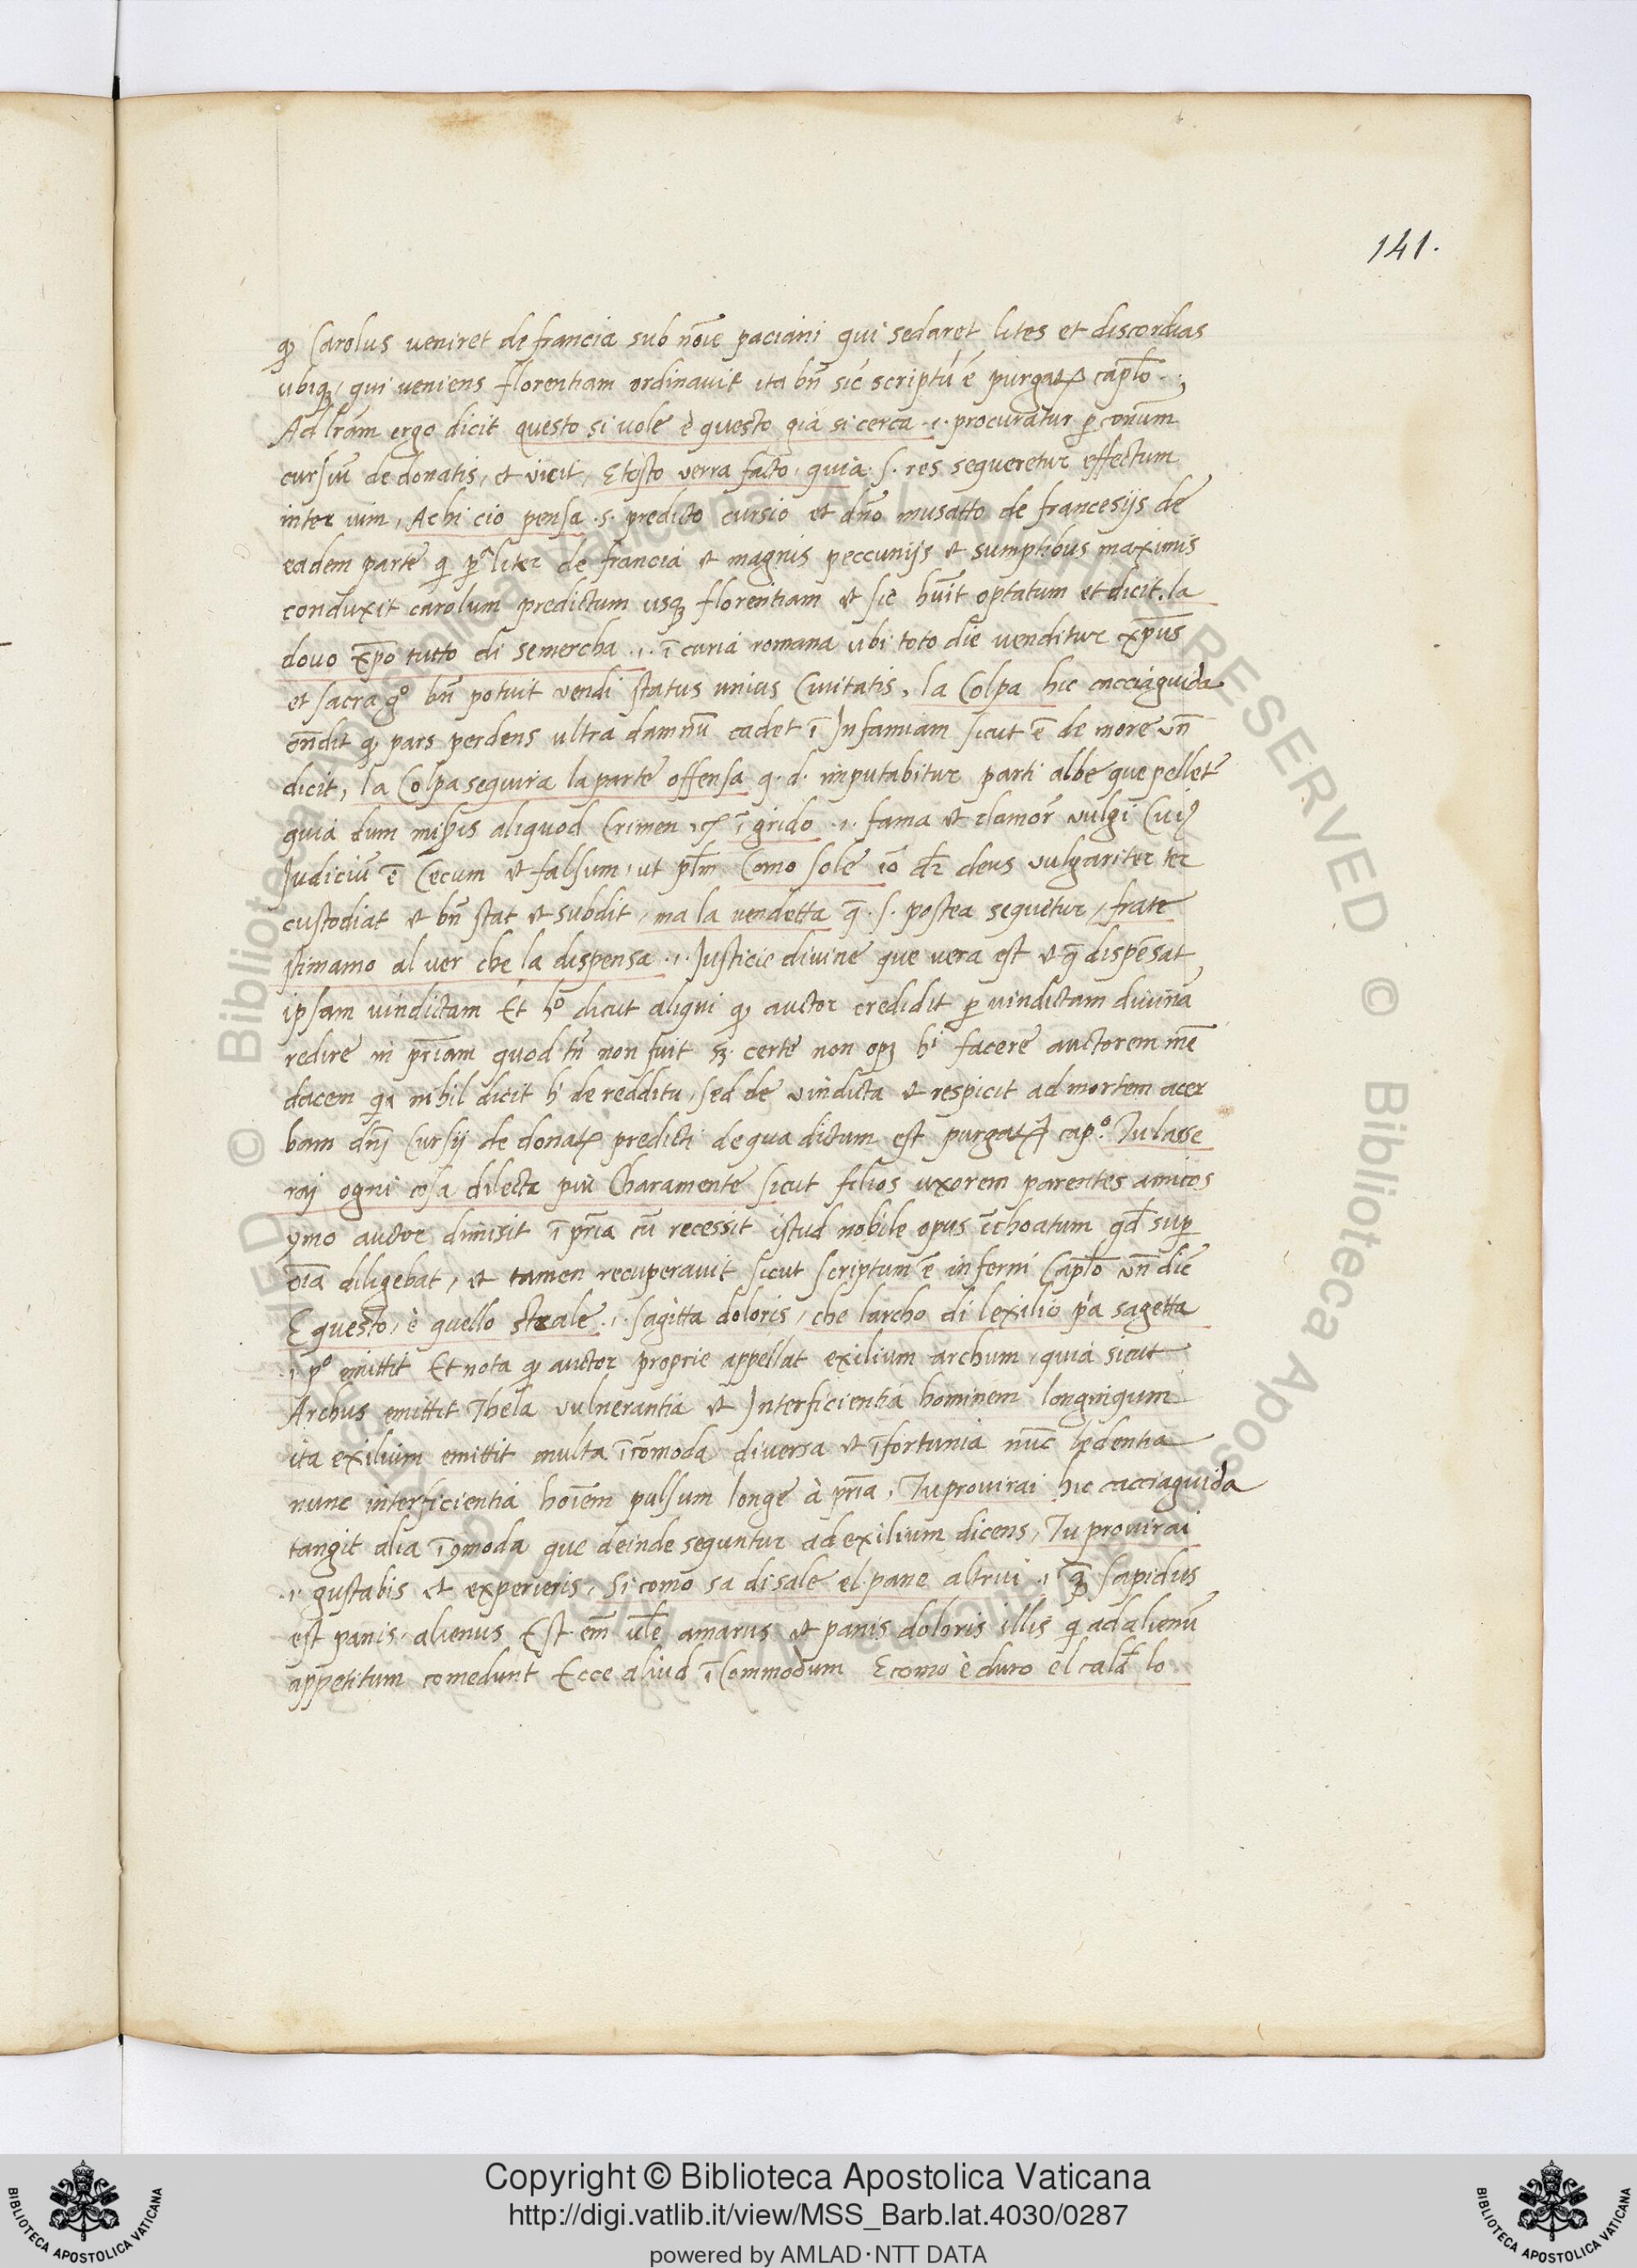 141.
qȝ Carolus veniret de francia sub nōīe paciarii qui sedaret lites et discordias
ubiqȝ, qui veniens florentiam ordinavit ita bn̄ sic̄ scriptū ē purgatꝝ cap̄lo .
Ad lr̄am ergo dicit questo si vole è questo già si cerca .i. procuratur ꝑ
cursiū de donatis, et vicit, E tosto verra facto, quia .s. res sequeretur effectum
inter vim, A chi ciò pensa .s. predicto cursio et dn̄o musatto de francesijs de
eadem parte de francia et magnis peccunijs et sumptibus maximis
conduxit carolum predictum usqȝ florentiam et sic huīt optatum et dicit. la
dovo xp̄o tutto di se mercha .i. ī curia romana ubi toto die venditur xp̄us
et sacra gͦ bn̄ potuit vendi status unius Civitatis, la Colpa hic cacciaguida
on̄dit qȝ pars perdens ultra damnū cadet ī Infamiam sicut ē de more un̄
dicit, la Colpa seguira la parte offensa q. d. imputabitur parti albe que pellet̄
quia dum aliquod Crimen ī grido .i. fama et clamor̄ vulgi
Judiciū ē Cecum et falsum, ut pl̄m Como sole deus vulgariter ter
custodiat et bn̄ stat et subdit, ma la vendetta q̄ .s. postea sequētur, fia te
stimamo al ver che la dispensa .i. Justicie divine que vera est et q̄ dispēsat
ipsam vindictam Et hͦ dicut aliqui qȝ auctor credidit ꝑ vindictam divinā
redire in pr̄iam quod tn̄ non fuit sȝ certe non opȝ hⁱ facere auctorem mē
dacem qⁱa nihil dicit hⁱ de redditu, sed de vindicta et respicit ad mortem acer
bam dn̄j Cursij de donatꝝ predicti de qua dictum est purgatꝝ capͦ. Tu lasse
raj ogni cosa dilecta più Charamente sicut filios uxorem parentes amicos
ymo auctor dimisit ī pr̄ia cū recessit istud nobile opus īchoatum qd̄ suꝑ
oīa diligebat, et tamen recuperavit sicut scriptum ē inferni Cap̄lo un̄ dic̄
E questo, è quello strale .i. sagitta doloris, che larcho di lexilio pͥa sagetta
.i. pͦ emittit Et nota qȝ auctor proprie appellat exilium archum, quia sicut
Archus emittit Thela vulnerantia et Interficientia hominem longinqum
ita exilium emittit multa īcōmoda diversa et īfortunia nūc ledentia
nunc interficientia hoīem pulsum longe à pr̄ia, Tu provirai hic cacciaguida
tangit alia īcōmoda que deinde sequntur ad exilium dicens, Tu provirai
.i. gustabis et experieris, Si como sa di sale el pane altrui .i. sapidus
est panis alienus Est em̄ amarus et panis doloris illis qⁱ ad alienū
appetitum comedunt Ecce aliud īCommodum E como è duro el lo
Copyright © Biblioteca Apostolica Vaticana
http://digi.vatlib.it/view/MSS_Barb.lat.4030/0287
powered by AMLAD·NTT DATA
BIBLIOTECA APOSTOLICA VATICANA
BIBLIOTECA APOSTOLICA VATICANA